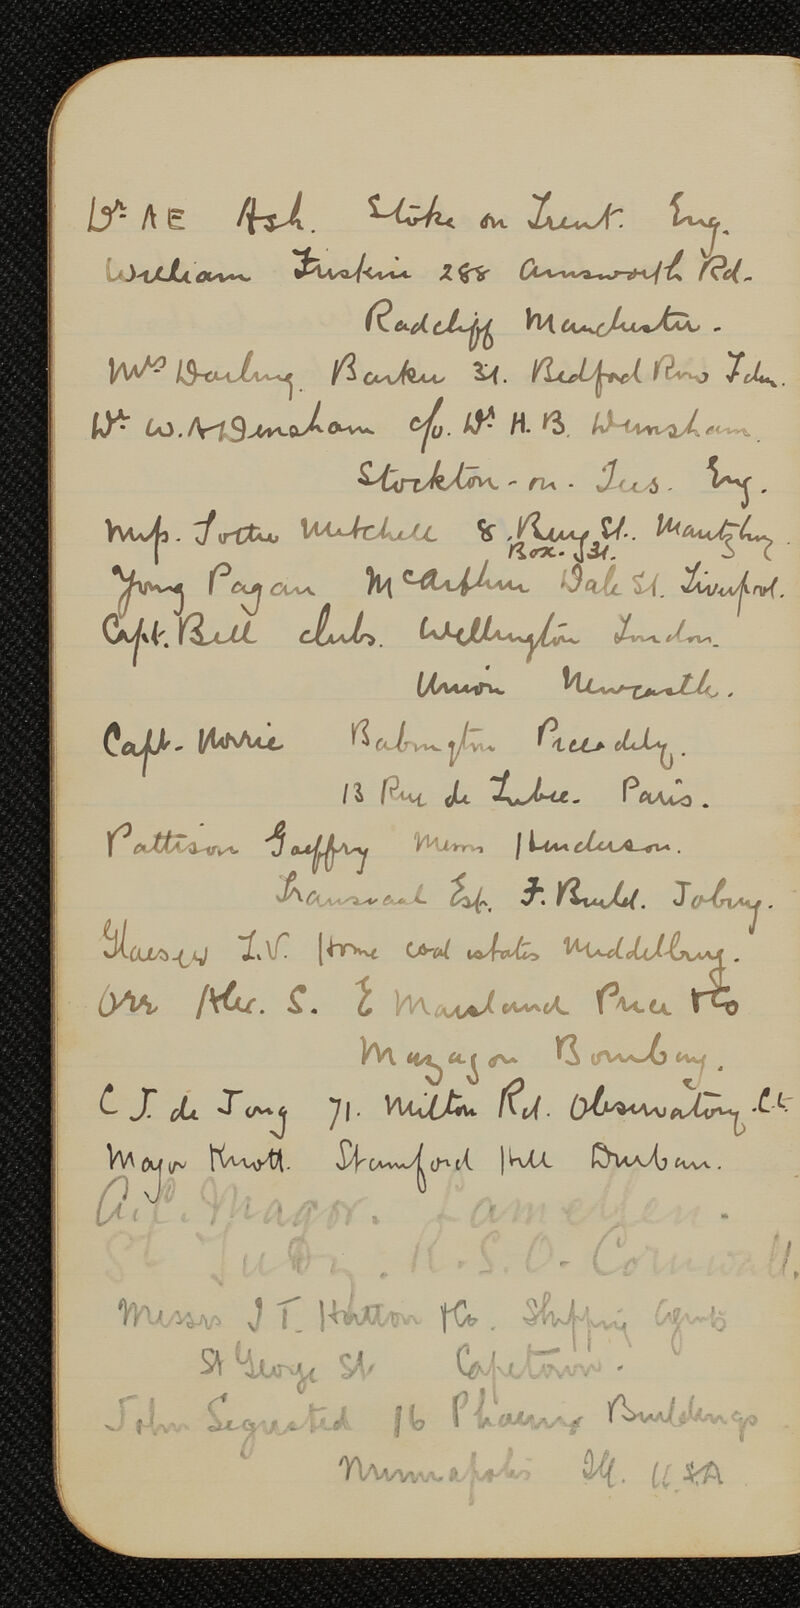 Dr A E Ash. Stoke on Trent. Eng.
William Erskine 288 Ainsworth Rd.
Radcliff Manchester.
Mrs Darling Barker 31. Bedford Row Ldn.
Dr W. A Densham c/o. Dr H. B. Densham.
Stockton-on-Tees. Eng.
Miss. Lottie Mitchell 8. Burg St. Maritzburg
Box. 31.
Young Pagan McArthur Dale St. Liverpool.
Capt. Bell clubs. Wellington London.
Union Newcastle.
Capt. Norrie Babington Piccadily.
13 Rue de Lubec. Paris.
Pattison Geoffry Messrs Henderson.
Transvaal Est. F. Build. Joburg.
Glaeser L.V. Home coal estates Middelburg.
Orr Alex. S. E Marsland Price & Co
Mazagon Bombay.
C J. de Jong 71. Milton Rd. Observatory. C.t.
Major Knott. Stamford Hill Durban.
A.C. Magor. Lamellen.
St Tudy. R.S.O. Cornwall.
Messrs J T. Hutton & Co. Shipping Agents
St George St Capetown.
John 16 Phoenix Buildings
Minneapolis Ill. U.S.A